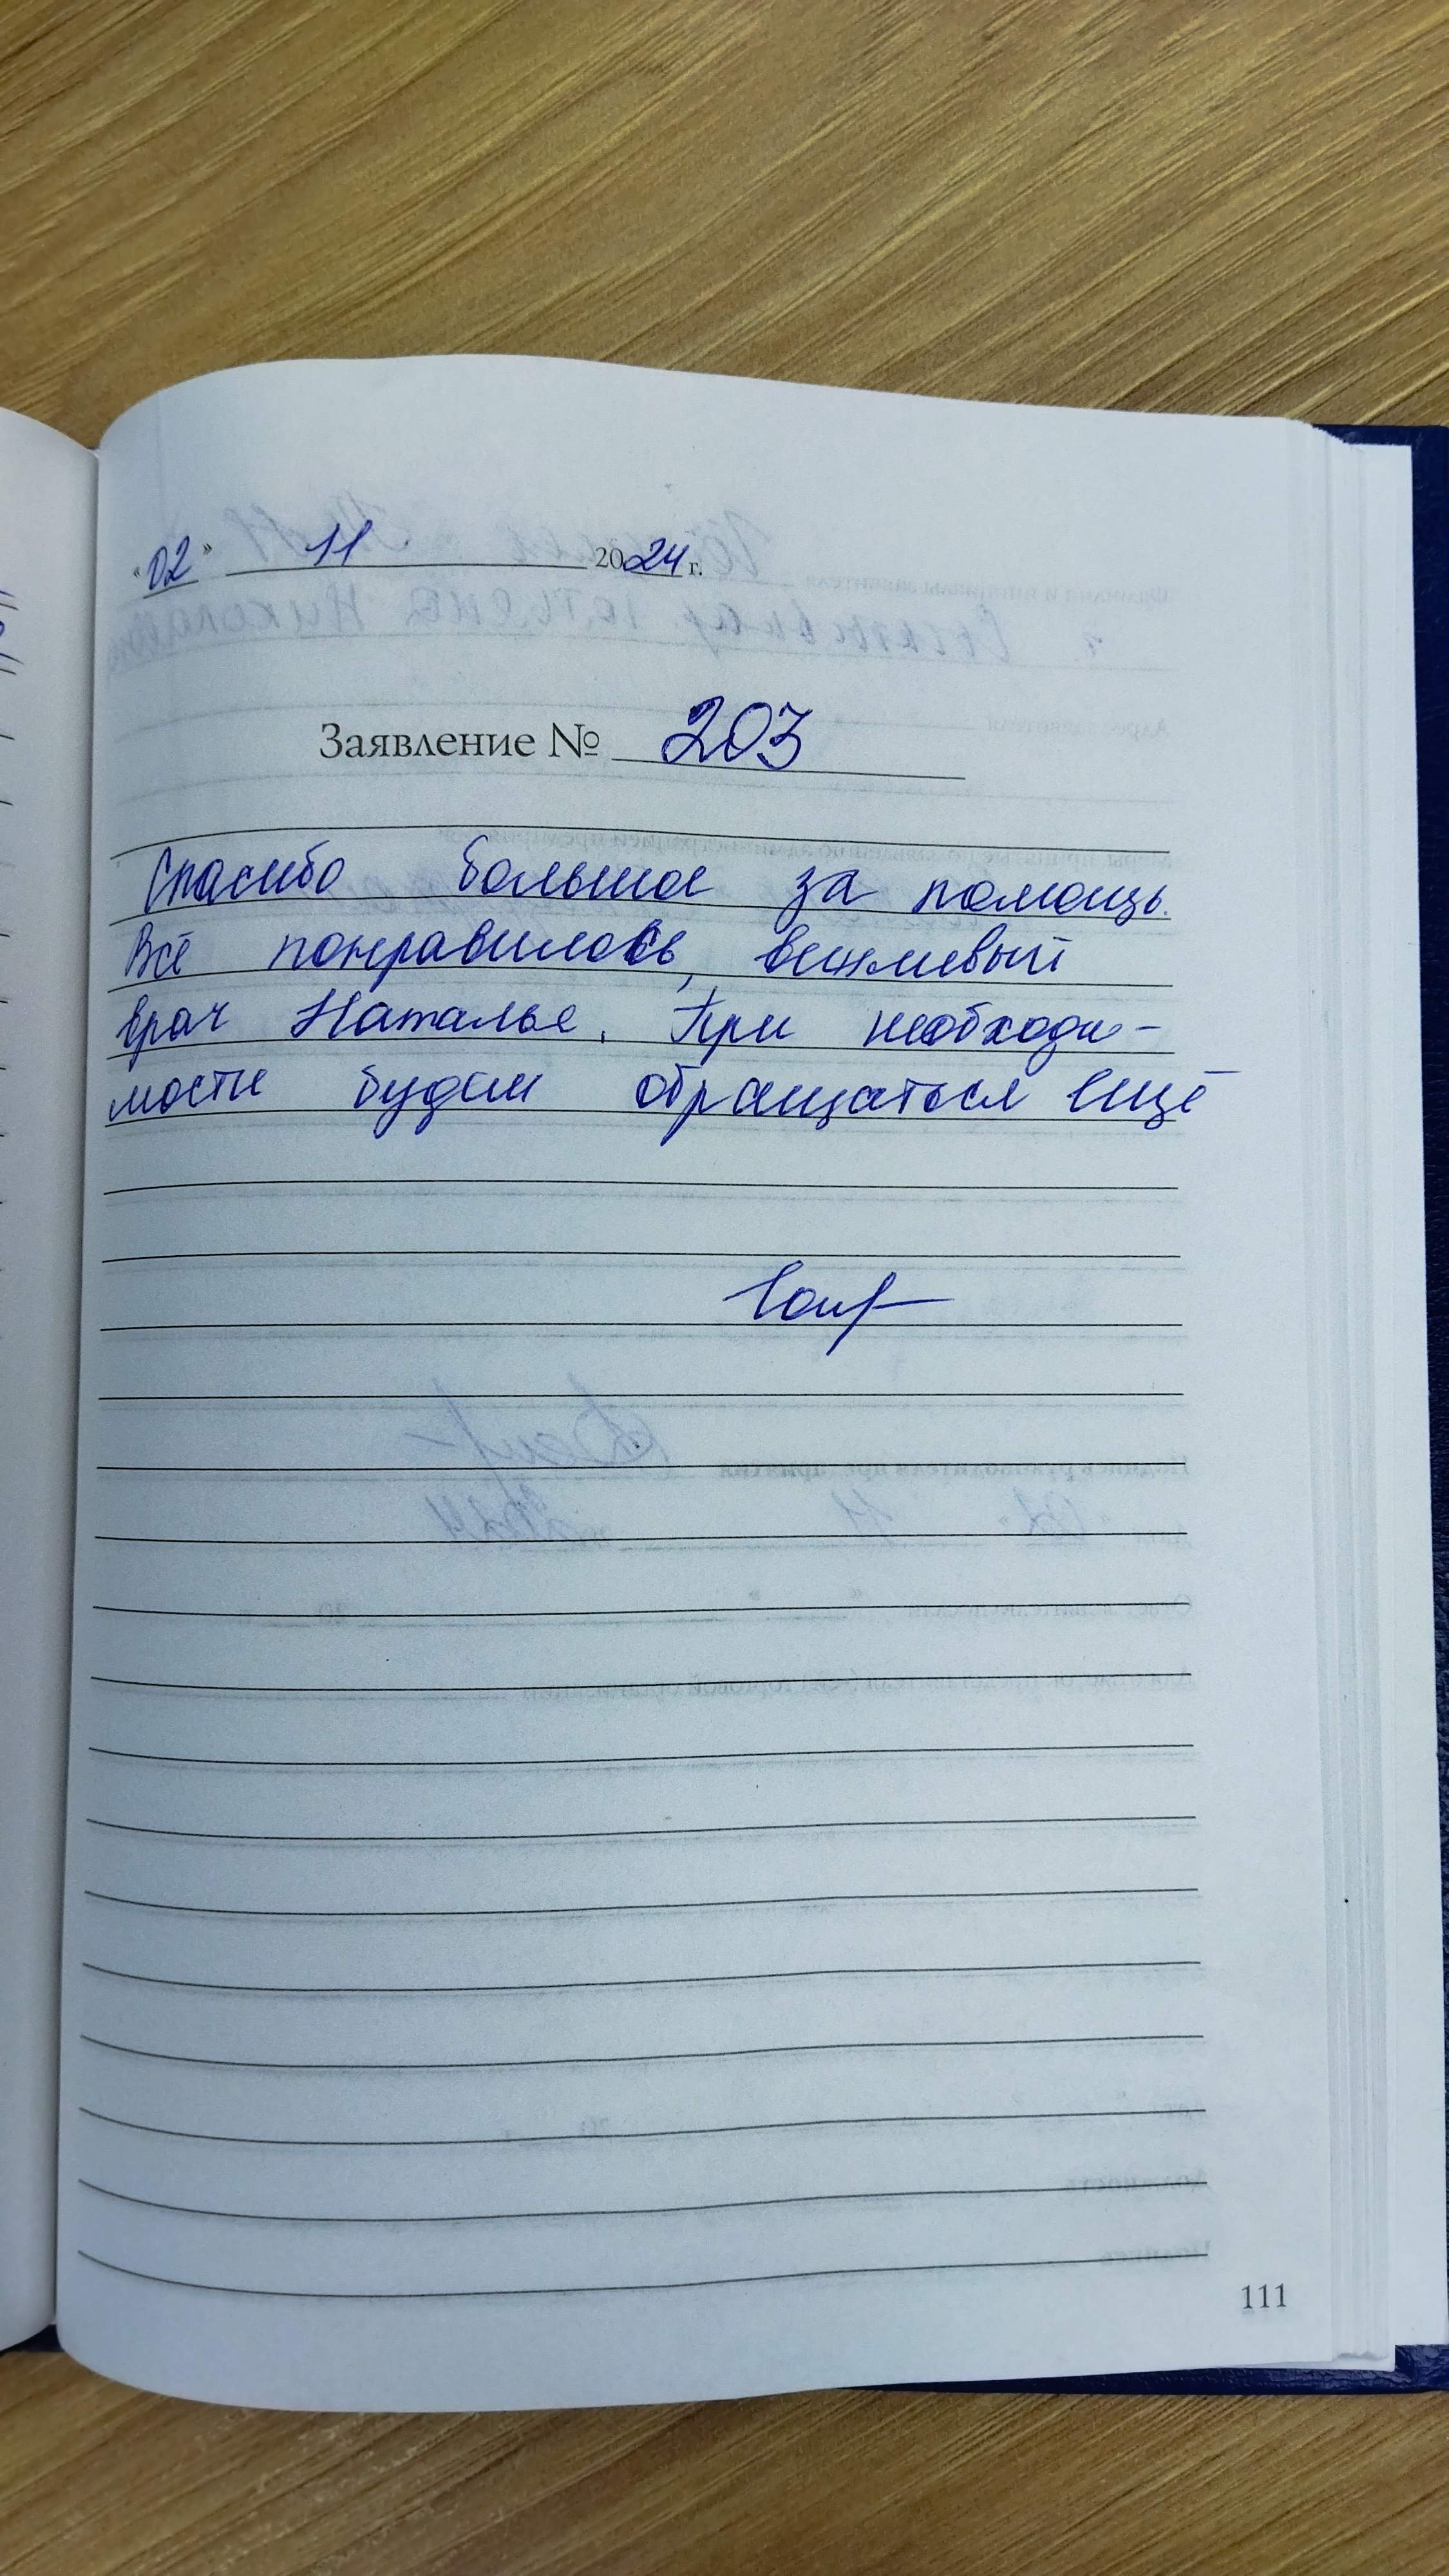 "02" 11 2024 г.
Заявление № 203
Спасибо большое за помощь.
Всё понравилось, вежливый
врач Наталье. При необходи-
мости будем обращаться ещё
111